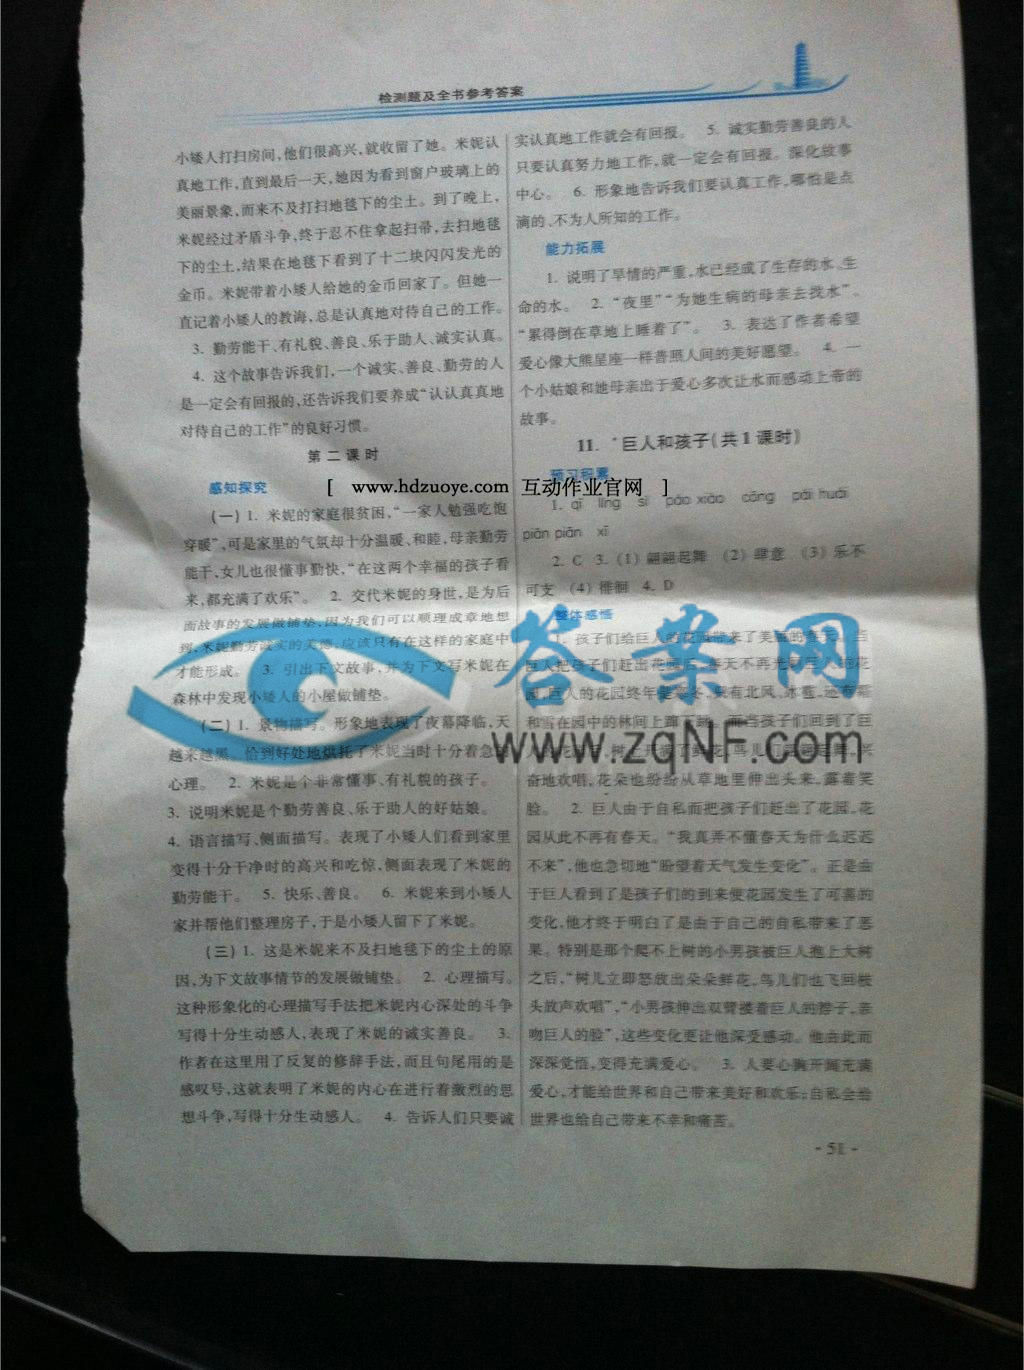 检测题及全书参考答案
小矮人打扫房间,他们很高兴,就收留了她。米妮认
真地工作,直到最后一天,她因为看到窗户玻璃上的
美丽景象,而来不及打扫地毯下的尘土。到了晚上,
米妮经过矛盾斗争,终于忍不住拿起扫帚,去扫地毯
下的尘土,结果在地毯下看到了十二块闪闪发光的
金币。米妮带着小矮人给她的金币回家了。但她一
直记着小矮人的教诲,总是认真地对待自己的工作。
3. 勤劳能干、有礼貌、善良、乐于助人、诚实认真。
4. 这个故事告诉我们,一个诚实、善良、勤劳的人
是一定会有回报的,还告诉我们要养成“认认真真地
对待自己的工作”的良好习惯。
第二课时
感知探究
(一) 1. 米妮的家庭很贫困,“一家人勉强吃饱
穿暖”,可是家里的气氛却十分温暖、和睦,母亲勤劳
能干,女儿也很懂事勤快,“在这两个幸福的孩子看
来,都充满了欢乐”。 2. 交代米妮的身世,是为后
面故事的发展做铺垫,因为我们可以顺理成章地想
到,米妮勤劳诚实的美德,应该只有在这样的家庭中
才能形成。 3. 引出下文故事,并为下文写米妮在
森林中发现小矮人的小屋做铺垫。
(二) 1. 景物描写。形象地表现了夜幕降临,天
越来越黑。恰到好处地烘托了米妮当时十分着急的
心理。 2. 米妮是个非常懂事、有礼貌的孩子。
3. 说明米妮是个勤劳善良、乐于助人的好姑娘。
4. 语言描写、侧面描写。表现了小矮人们看到家里
变得十分干净时的高兴和吃惊,侧面表现了米妮的
勤劳能干。 5. 快乐、善良。 6. 米妮来到小矮人
家并帮他们整理房子,于是小矮人留下了米妮。
(三) 1. 这是米妮来不及扫地毯下的尘土的原
因,为下文故事情节的发展做铺垫。 2. 心理描写。
这种形象化的心理描写手法把米妮内心深处的斗争
写得十分生动感人,表现了米妮的诚实善良。 3.
作者在这里用了反复的修辞手法,而且句尾用的是
感叹号,这就表明了米妮的内心在进行着激烈的思
想斗争,写得十分生动感人。 4. 告诉人们只要诚
实认真地工作就会有回报。 5. 诚实勤劳善良的人
只要认真努力地工作,就一定会有回报。深化故事
中心。 6. 形象地告诉我们要认真工作,哪怕是点
滴的、不为人所知的工作。
能力拓展
1. 说明了旱情的严重,水已经成了生存的水、生
命的水。 2. “夜里”“为她生病的母亲去找水”。
“累得倒在草地上睡着了”。 3. 表达了作者希望
爱心像大熊星座一样普照人间的美好愿望。 4. 一
个小姑娘和她母亲出于爱心多次让水而感动上帝的
故事。
11. *巨人和孩子(共1课时)
预习积累
[ www.hdzuoye.com 互动作业官网 ]
1. qī líng sì páo xiào cáng pái huái
piān piān xī
2. C 3. (1) 翩翩起舞 (2) 肆意 (3) 乐不
可支 (4) 徘徊 4. D
整体感悟
1. 孩子们给巨人的花园带来了美丽的春天。当
巨人把孩子们赶出花园后,春天不再光顾巨人的花
园,巨人的花园终年是寒冬,只有北风、冰雹,还有霜
和雪在园中的林间上蹿下跳。而当孩子们回到了巨
人花园后,树上开满了鲜花,鸟儿们翩翩起舞,兴
奋地欢唱,花朵也纷纷从草地里伸出头来,露着笑
脸。 2. 巨人由于自私而把孩子们赶出了花园,花
园从此不再有春天。“我真弄不懂春天为什么迟迟
不来”,他也急切地“盼望着天气发生变化”。正是由
于巨人看到了是孩子们的到来使花园发生了可喜的
变化,他才终于明白了是由于自己的自私带来了恶
果。特别是那个爬不上树的小男孩被巨人抱上大树
之后,“树儿立即怒放出朵朵鲜花,鸟儿们也飞回枝
头放声欢唱”,“小男孩伸出双臂搂着巨人的脖子,亲
吻巨人的脸”,这些变化更让他深受感动。他由此而
深深觉悟,变得充满爱心。 3. 人要心胸开阔充满
爱心,才能给世界和自己带来美好和欢乐;自私会给
世界也给自己带来不幸和痛苦。
答案网
www.zqNF.com
- 51 -